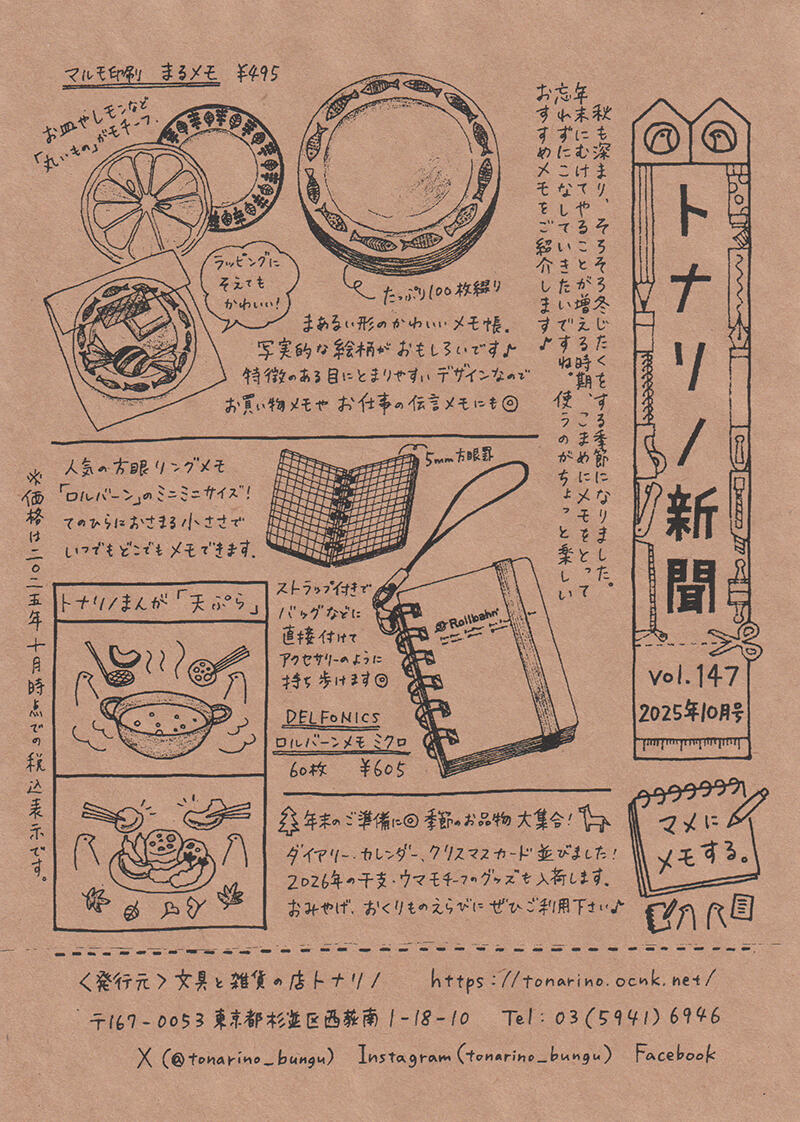 トナリノ新聞
vol.147
2025年10月号
秋も深まり、そろそろ冬じたくをする季節になりました。
年末にむけてやることが増える時期、こまめにメモをとって
忘れずにこなしていきたいですね。使うのがちょっと楽しい
おすすめメモをご紹介します♪
マルモ印刷 まるメモ ¥495
お皿やレモンなど
「丸いもの」がモチーフ。
ラッピングに
そえても
かわいい!
たっぷり100枚綴り
まあるい形のかわいいメモ帳。
写実的な絵柄がおもしろいです♪
特徴のある目にとまりやすいデザインなので
お買い物メモや お仕事の伝言メモにも◎
人気の方眼リングメモ
「ロルバーン」のミニミニサイズ!
てのひらにおさまる小ささで
いつでもどこでもメモできます。
5mm方眼罫
ストラップ付きで
バッグなどに
直接付けて
アクセサリーのように
持ち歩けます◎
Rollbahn
DELFONICS
ロルバーンメモ ミクロ
60枚 ¥605
※価格は二〇二五年十月時点での税込表示です。
トナリノまんが「天ぷら」
年末のご準備に◎ 季節のお品物 大集合!
ダイアリー・カレンダー、クリスマスカード並びました!
2026年の干支・ウマモチーフのグッズも入荷します。
おみやげ、おくりものえらびに ぜひご利用下さい♪
マメに
メモする。
<発行元> 文具と雑貨の店トナリノ https://tonarino.ocnk.net/
〒167-0053 東京都杉並区西荻南1-18-10 Tel: 03(5941)6946
X (@tonarino_bungu) Instagram (tonarino_bungu) Facebook